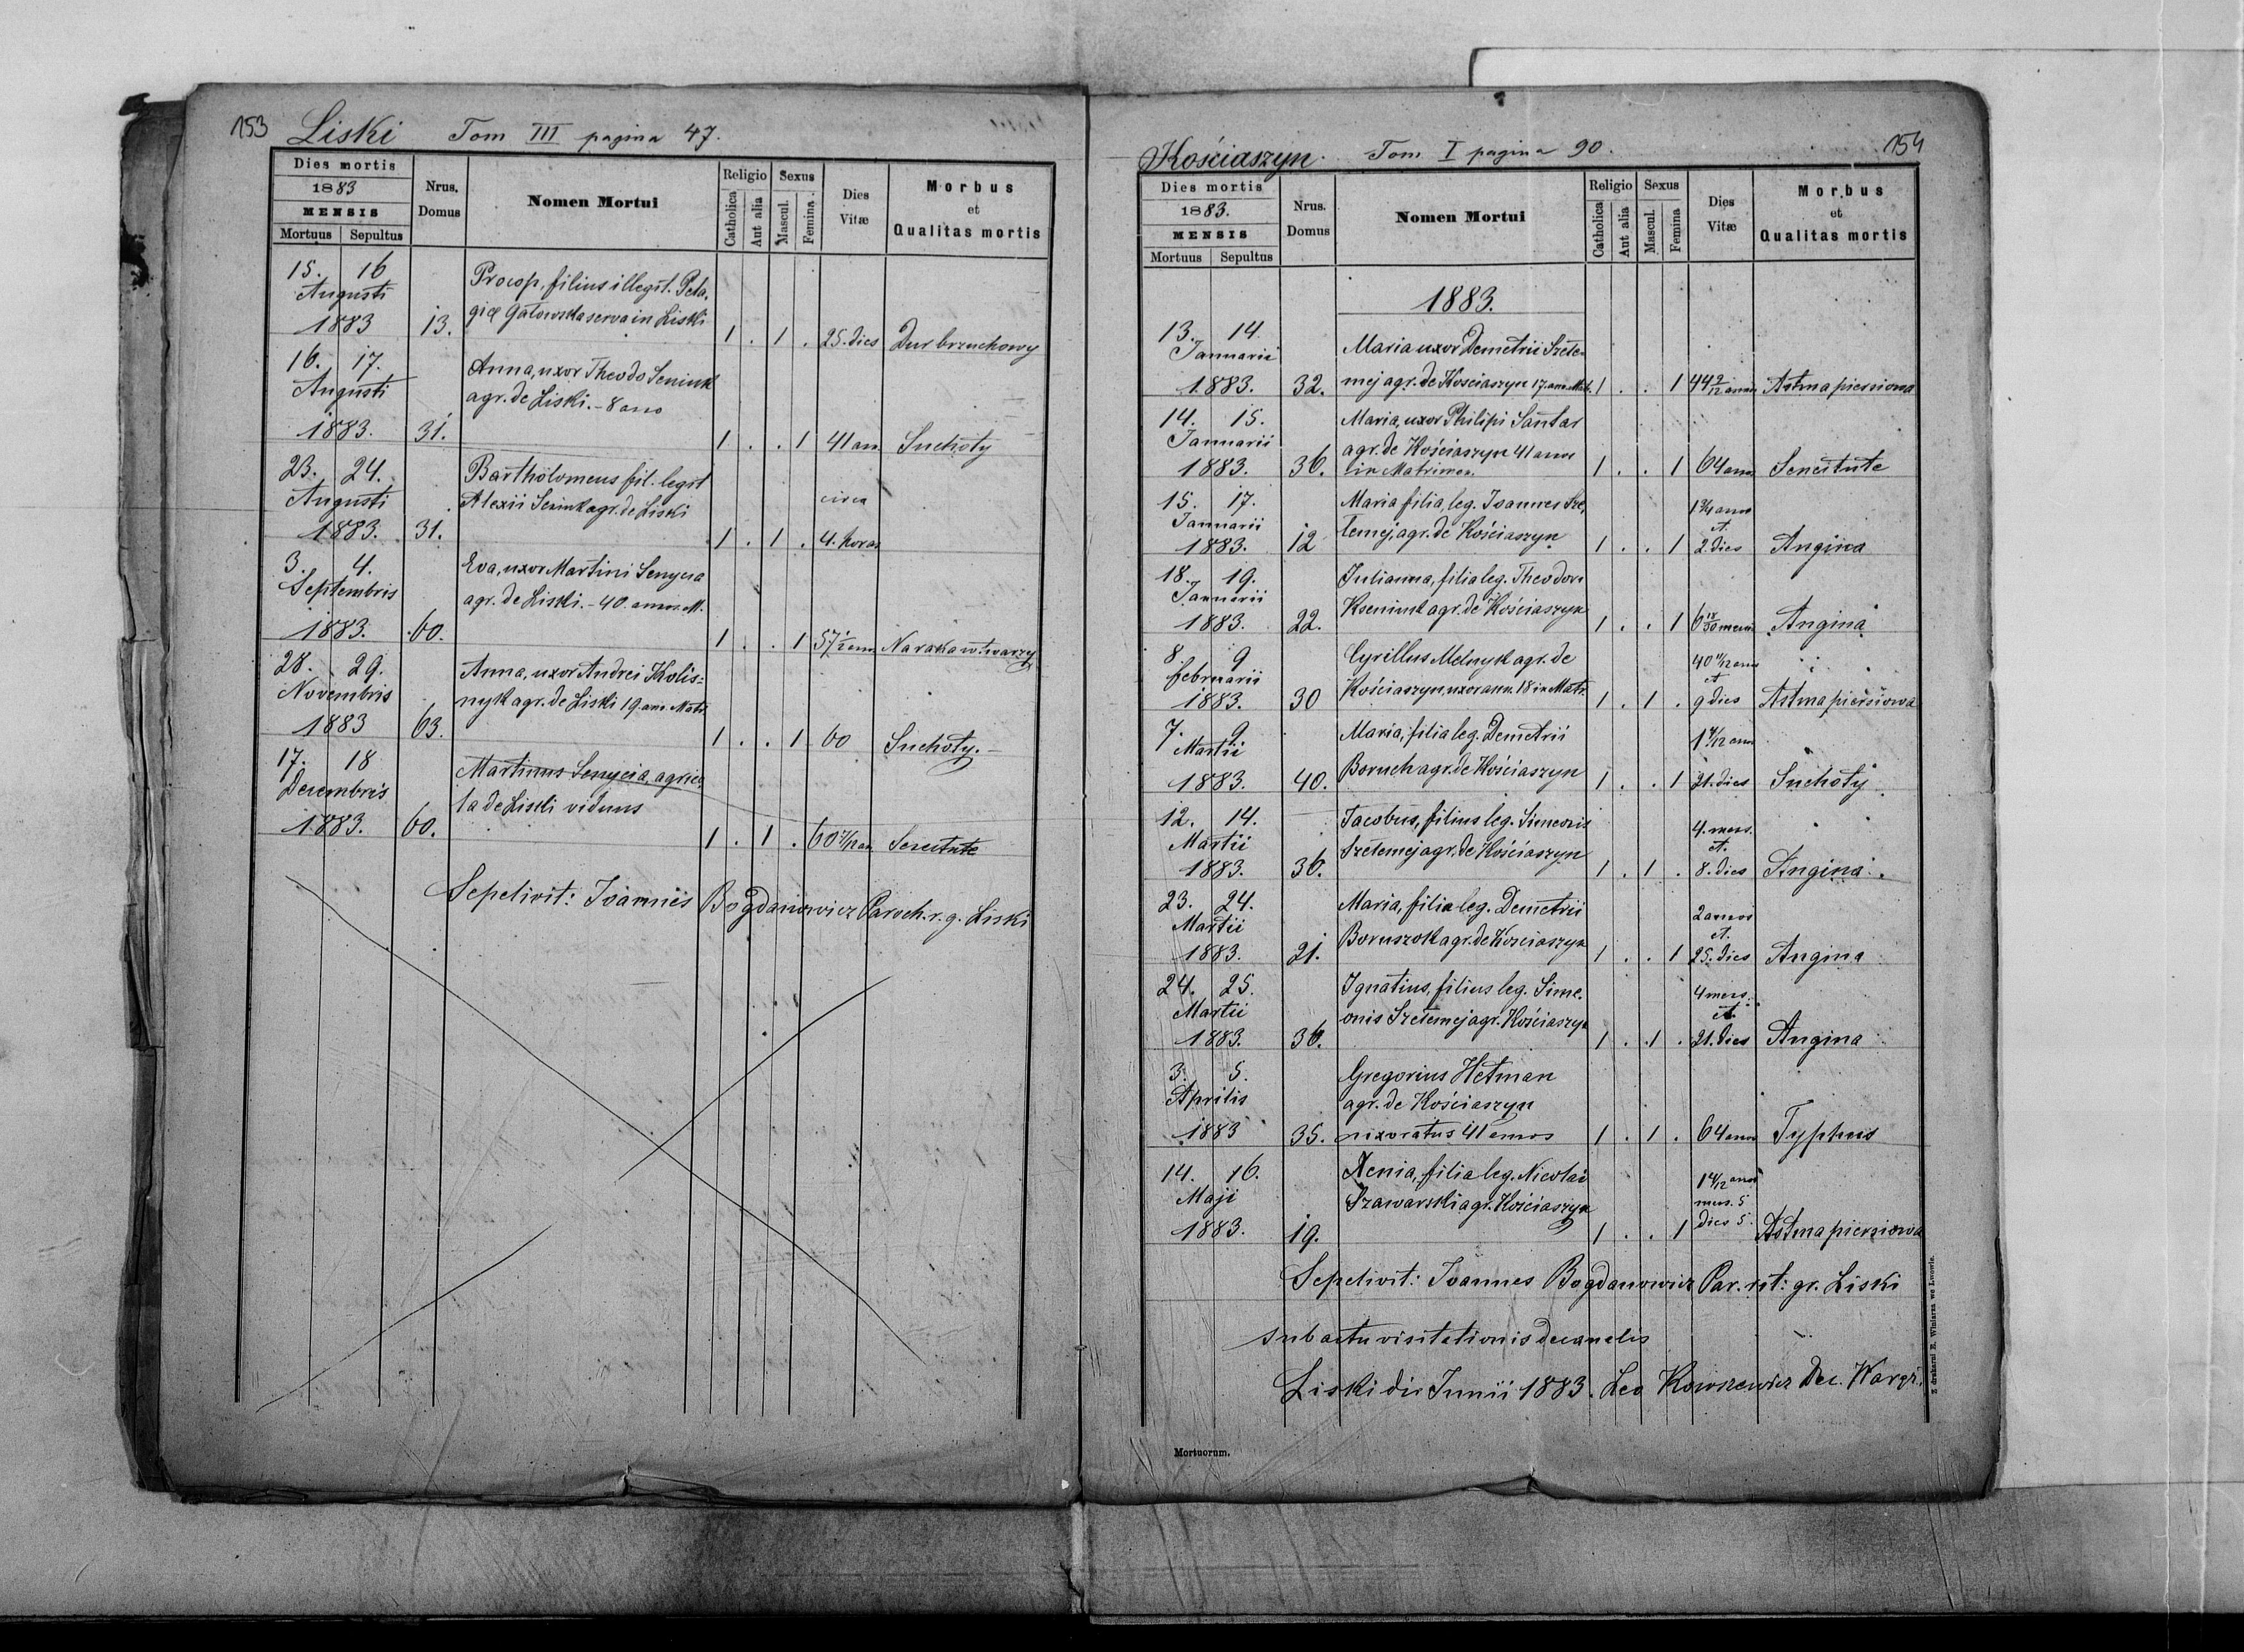 153 Liski Tom III pagina 47.
Dies mortis
1883
MENSIS
Mortuus Sepultus
Nrus. Domus
Nomen Mortui
Religio
Catholica
Aut alia
Sexus
Mascul.
Femina.
Dies Vitæ
Morbus
et
Qualitas mortis
15. 16 Procop, filius illegit. Pela,
Augusti giæ Gatowska serva in Liski
1883 13. 1 . 1 . 25. dies Dur brzuchowy
16. 17. Anna, uxor Theodo Seniuk
Augusti agr. de Liski. - 8 ano
1883. 31. 1 . . 1 41 an Suchoty
23. 24. Bartholomeus fil. legit
Augusti Alexii Seniuk agr. de Liski circa
1883. 31. 1 . 1 . 4. horas
3. 4. Eva, uxor Martini Senycia
Septembris agr. de Liski. - 40. annos M.
1883. 60. 1 . . 1 57 1/2 ann Na raka w twarzy
28. 29. Anna, uxor Andrei Kolis=
Novembris nyk agr. de Liski 19. ann. Matr.
1883 63. 1 . . 1 60 Suchoty. -
17. 18 Martinus Senycia, agrico,
Decembris la de Liski viduus
1883. 60. 1 . 1 . 60 1/12 an Senectute
Sepelivit: Joannes Bogdanowicz Paroch. r. g. Liski
154
Kościaszyn. Tom I pagina 90.
Dies mortis
1883.
MENSIS
Mortuus Sepultus
Nrus. Domus
Nomen Mortui
Religio
Catholica
Aut alia
Sexus
Mascul.
Femina
Dies Vitæ
Morbus
et
Qualitas mortis
1883.
13. 14. Maria uxor Demetrii Szete
Januarii
1883. 32. mej agr. de Kosciaszyn 17. ann. Mat. 1 . . 1 44 9/12 annos Astma piersiowa
14. 15. Maria, uxor Philipi Santar
Januarii agr. de Kościaszyn 41 annos
1883. 36. in Matrimon. 1 . . 1 64 annos Senectute
15. 17. Maria filia, leg. Joannes Sze,
Januarii temej, agr. de Kościaszyn
1883. 12 1 . . 1 et 2. dies Angina
18. 19. Julianna, filia leg. Theodori
Januarii Kseniuk agr. de Kościaszyn
1883. 22. 1 . . 1 Angina
8 9 Cyrillus Melnyk agr. de 40 11/12 annos
februarii Kościaszyn, uxor ann. 18 in Matr. et
1883. 30 1 . 1 . 9 dies Astma piersiowa
7. 9 Maria, filia leg. Demetrii
Martii Boruch agr. de Kościaszyn
1883. 40. 1 . . 1 21. dies Suchoty
12. 14. Jacobus, filius leg. Simeonis 4. mens.
Martii Szetemej agr. de Kościaszyn et.
1883. 36. 1 . 1 . 8. dies Angina
23. 24. Maria, filia leg. Demetrii 2 annos
Martii Boruszok agr. de Kosciaszyn et.
1883. 21. 1 . . 1 25. dies Angina
24. 25. Ignatius, filius leg. Sime. 4 mens.
Martii onis Szetemej agr. Kościaszyn et
1883. 36. 1 . 1 . 21. dies Angina
3. 5. Gregorius Hetman
Aprilis agr. de Kościaszyn
1883 35. uxoratus 41 annos 1 . 1 . 64 annos Typhus
14. 16. Xenia, filia leg. Nicolai
Maji Szawarski agr. Kościaszyn mens. 5
1883. 19. 1 . . 1 dies 5. Astma piersiowa
Sepelivit: Joannes Bogdanowicz Par. rit: gr. Liski
sub actu visitationis decanalis
Liski die Junii 1883. Leo Dec.
Mortuorum.
Z drukarni E. Winiarza we Lwowie.